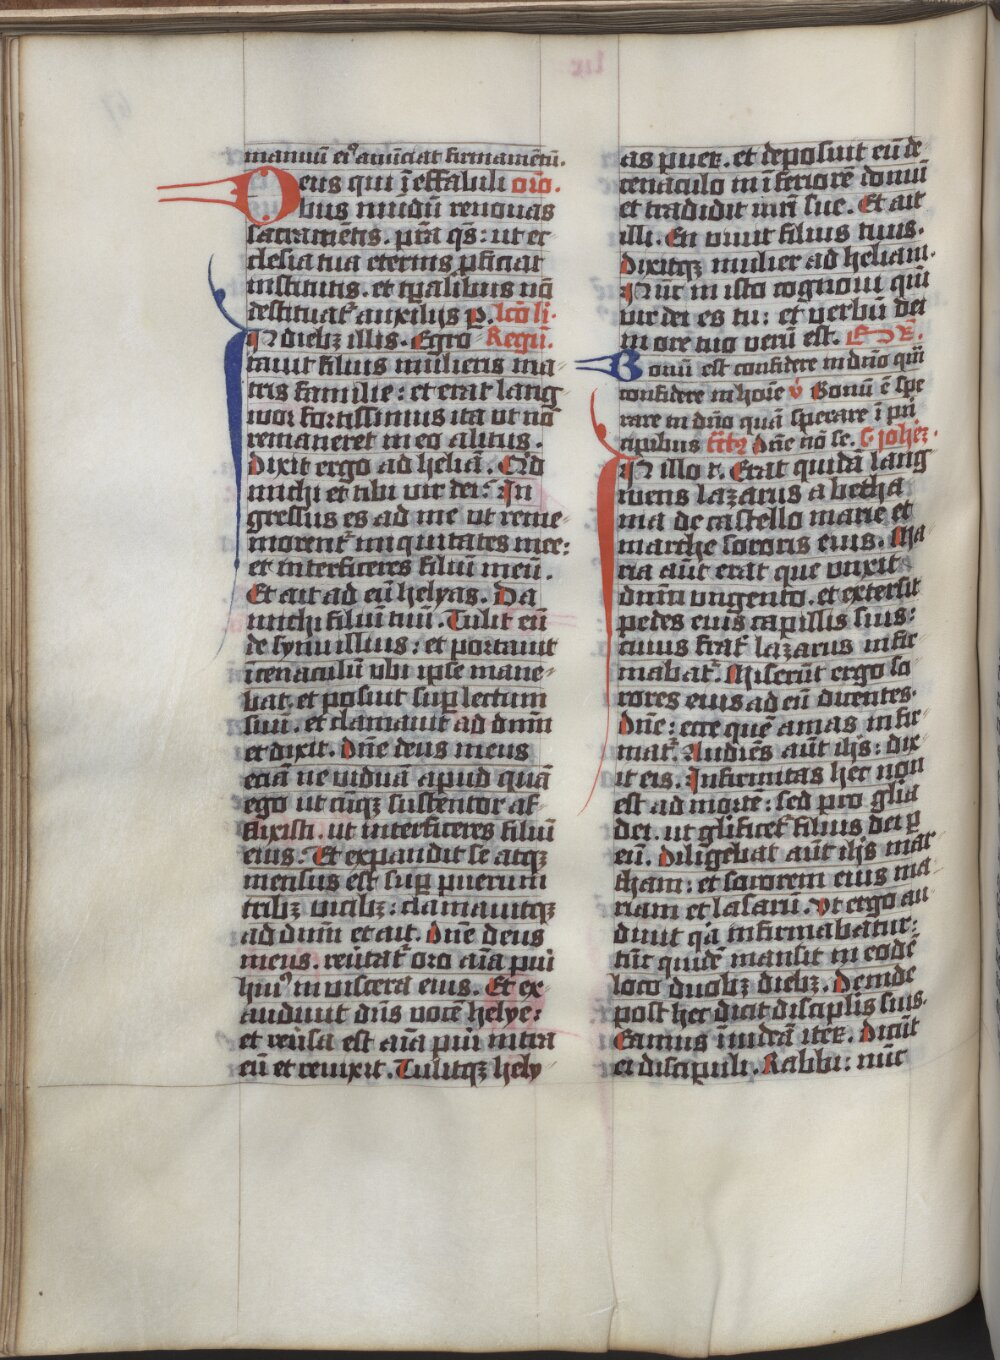 manuū eiꝰ anūciat firmamētū.
Deus qui īeffabili oro.
bus mūdū renouas
sacramētis. p̄sta q̄s: ut ec
clesia tua eternis ꝓficiat
institutis. et tp̄alibus nō
destituat᷑ auxilijs p. Lcō li.
IN diebꝫ illis. Egro Regū.
tauit filius mulieris ma
tris familie: et erat lang
wor fortissimus ita vt nō
remaneret in eo alitus.
Dixit ergo ad heliā. Qid
michi et tibi vir dei: In
gressus es ad me vt reme
morent᷑ iniquitates mee:
et interficeres filiū meū.
Et ait ad eū helyas. Da
michi filiū tuū. Tulit eū
de synu illius: et portauit
ī cenaculū vbi ipse mane
bat. et posuit sup̱ lectum
suū. et clamauit ad dn̄m
et dixit. Dn̄e deus meus
eciā ne viduā apud quā
ego ut cūqꝫ sustentor af
flixisti. ut interficeres filiū
eius. Et expandit se atqꝫ
mensus est sup̱ puerum
tribꝫ vicibꝫ: clamauitqꝫ
ad dn̄m et ait. Dn̄e deus
meus. reūtat᷑ oro aīa pūi
huiꝰ in viscera eius. Et ex
audiuit dn̄s vocē helye:
et reūsa est aīa pūi intra
eū et reuixit. Tulitqꝫ hely
as puer. et deposuit eū de
cenaculo in īferiorē domū
et tradidit mr̄i sue. Et ait
illi. En viuit filius tuus.
Dixitqꝫ mulier ad heliam.
Nūc in isto cognoui qm̄
vir dei es tu: et verbū dei
in ore tuo verū est. Gr̄.
Bonū est confidere in dn̄o qm̄
confidere in hoīe v̇ Bonū ē spe
rare in dn̄o quā sperare ī pri
cipibus tctꝰ Dn̄e nō se. S̄ johēꝫ.
IN illo t. Erat quidā lang
wens lazarus a betha
nia de castello marie et
marthe sororis eius. Ma
ria aūt erat que vnxit
dn̄m vngento. et extersit
pedes eius capillis suis:
cuius frat᷑ lazarus infir
mabat᷑. Miserūt ergo so
rores eius ad eū dicentes.
Dn̄e: ecce quē amas infir
mat᷑. Audiēs aūt ih̄s: dix
it eis. Infirmitas hec non
est ad mortē: sed pro gl̄ia
dei. ut gl̄ificet᷑ filius dei ꝑ
eū. Diligebat aūt ih̄s mar
tham: et sororem eius ma
riam et lasarū. Vt ergo au
diuit qꝛ infirmabatur:
tūc quidē mansit in eodē
loco duobꝫ diebꝫ. Deinde
post hec dicit discip̄lis suis.
Eamus ī iudeā iteꝝ. Dicūt
ei discipuli. Rabbi: nūc